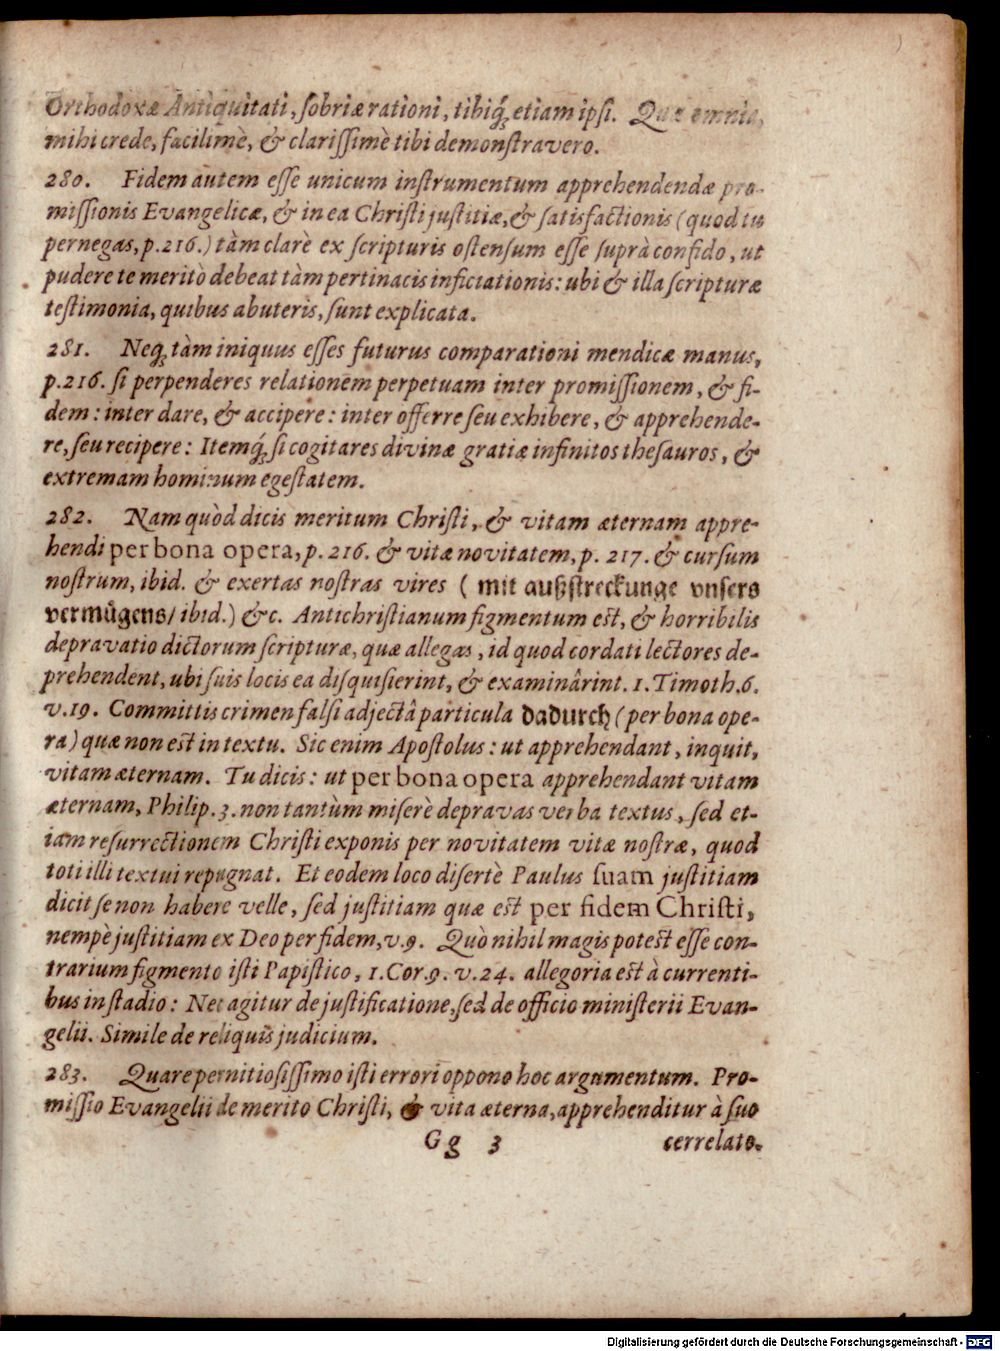 Orthodoxæ Antiquitati, ſobriæ rationi, tibiq́; etiam ipſi. Quæ omnia,
mihi crede, facilimè, & clariſſimè tibi demonſtravero.
280. Fidem autem eſſe unicum inſtrumentum apprehendendæ pro-
miſſionis Evangelicæ, & in ea Chriſti juſtitiæ, & ſatisfactionis (quod tu
pernegas, p. 216.) tàm clarè ex ſcripturis oſtenſum eſſe ſuprà confido, ut
pudere te meritò debeat tàm pertinacis inficiationis: ubi & illa ſcripturæ
teſtimonia, quibus abuteris, ſunt explicata.
281. Neq; tàm iniquus eſſes futurus comparationi mendicæ manus,
p. 216. ſi perpenderes relationem perpetuam inter promiſſionem, & fi-
dem: inter dare, & accipere: inter offerre ſeu exhibere, & apprehende-
re, ſeu recipere: Itemq́; ſi cogitares divinæ gratiæ infinitos theſauros, &
extremam hominum egeſtatem.
282. Nam quòd dicis meritum Chriſti, & vitam æternam appre-
hendi per bona opera, p. 216. & vitæ novitatem, p. 217. & curſum
noſtrum, ibid. & exertas noſtras vires ( mit außſtreckunge vnſers
vermügens/ ibid.) &c. Antichriſtianum figmentum eſt, & horribilis
depravatio dictorum ſcripturæ, quæ allegas, id quod cordati lectores de-
prehendent, ubi ſuis locis ea diſquiſierint, & examinârint. 1. Timoth. 6.
v. 19. Committis crimen falſi adjectâ particula dadurch (per bona ope-
ra) quæ non eſt in textu. Sic enim Apoſtolus: ut apprehendant, inquit,
vitam æternam. Tu dicis: ut per bona opera apprehendant vitam
æternam, Philip. 3. non tantùm miſerè depravas verba textus, ſed et-
iam reſurrectionem Chriſti exponis per novitatem vitæ noſtræ, quod
toti illi textui repugnat. Et eodem loco diſertè Paulus ſuam juſtitiam
dicit ſe non habere velle, ſed juſtitiam quæ eſt per fidem Chriſti,
nempè juſtitiam ex Deo per fidem, v. 9. Quò nihil magis poteſt eſſe con-
trarium figmento iſti Papiſtico, 1. Cor. 9. v. 24. allegoria eſt à currenti-
bus in ſtadio: Nec agitur de juſtificatione, ſed de officio miniſterii Evan-
gelii. Simile de reliquis judicium.
283. Quare pernitioſiſſimo iſti errori oppono hoc argumentum. Pro-
miſſio Evangelii de merito Chriſti, & vita æterna, apprehenditur à ſuo
Gg 3 correlato.
Digitalisierung gefördert durch die Deutsche Forschungsgemeinschaft - DFG